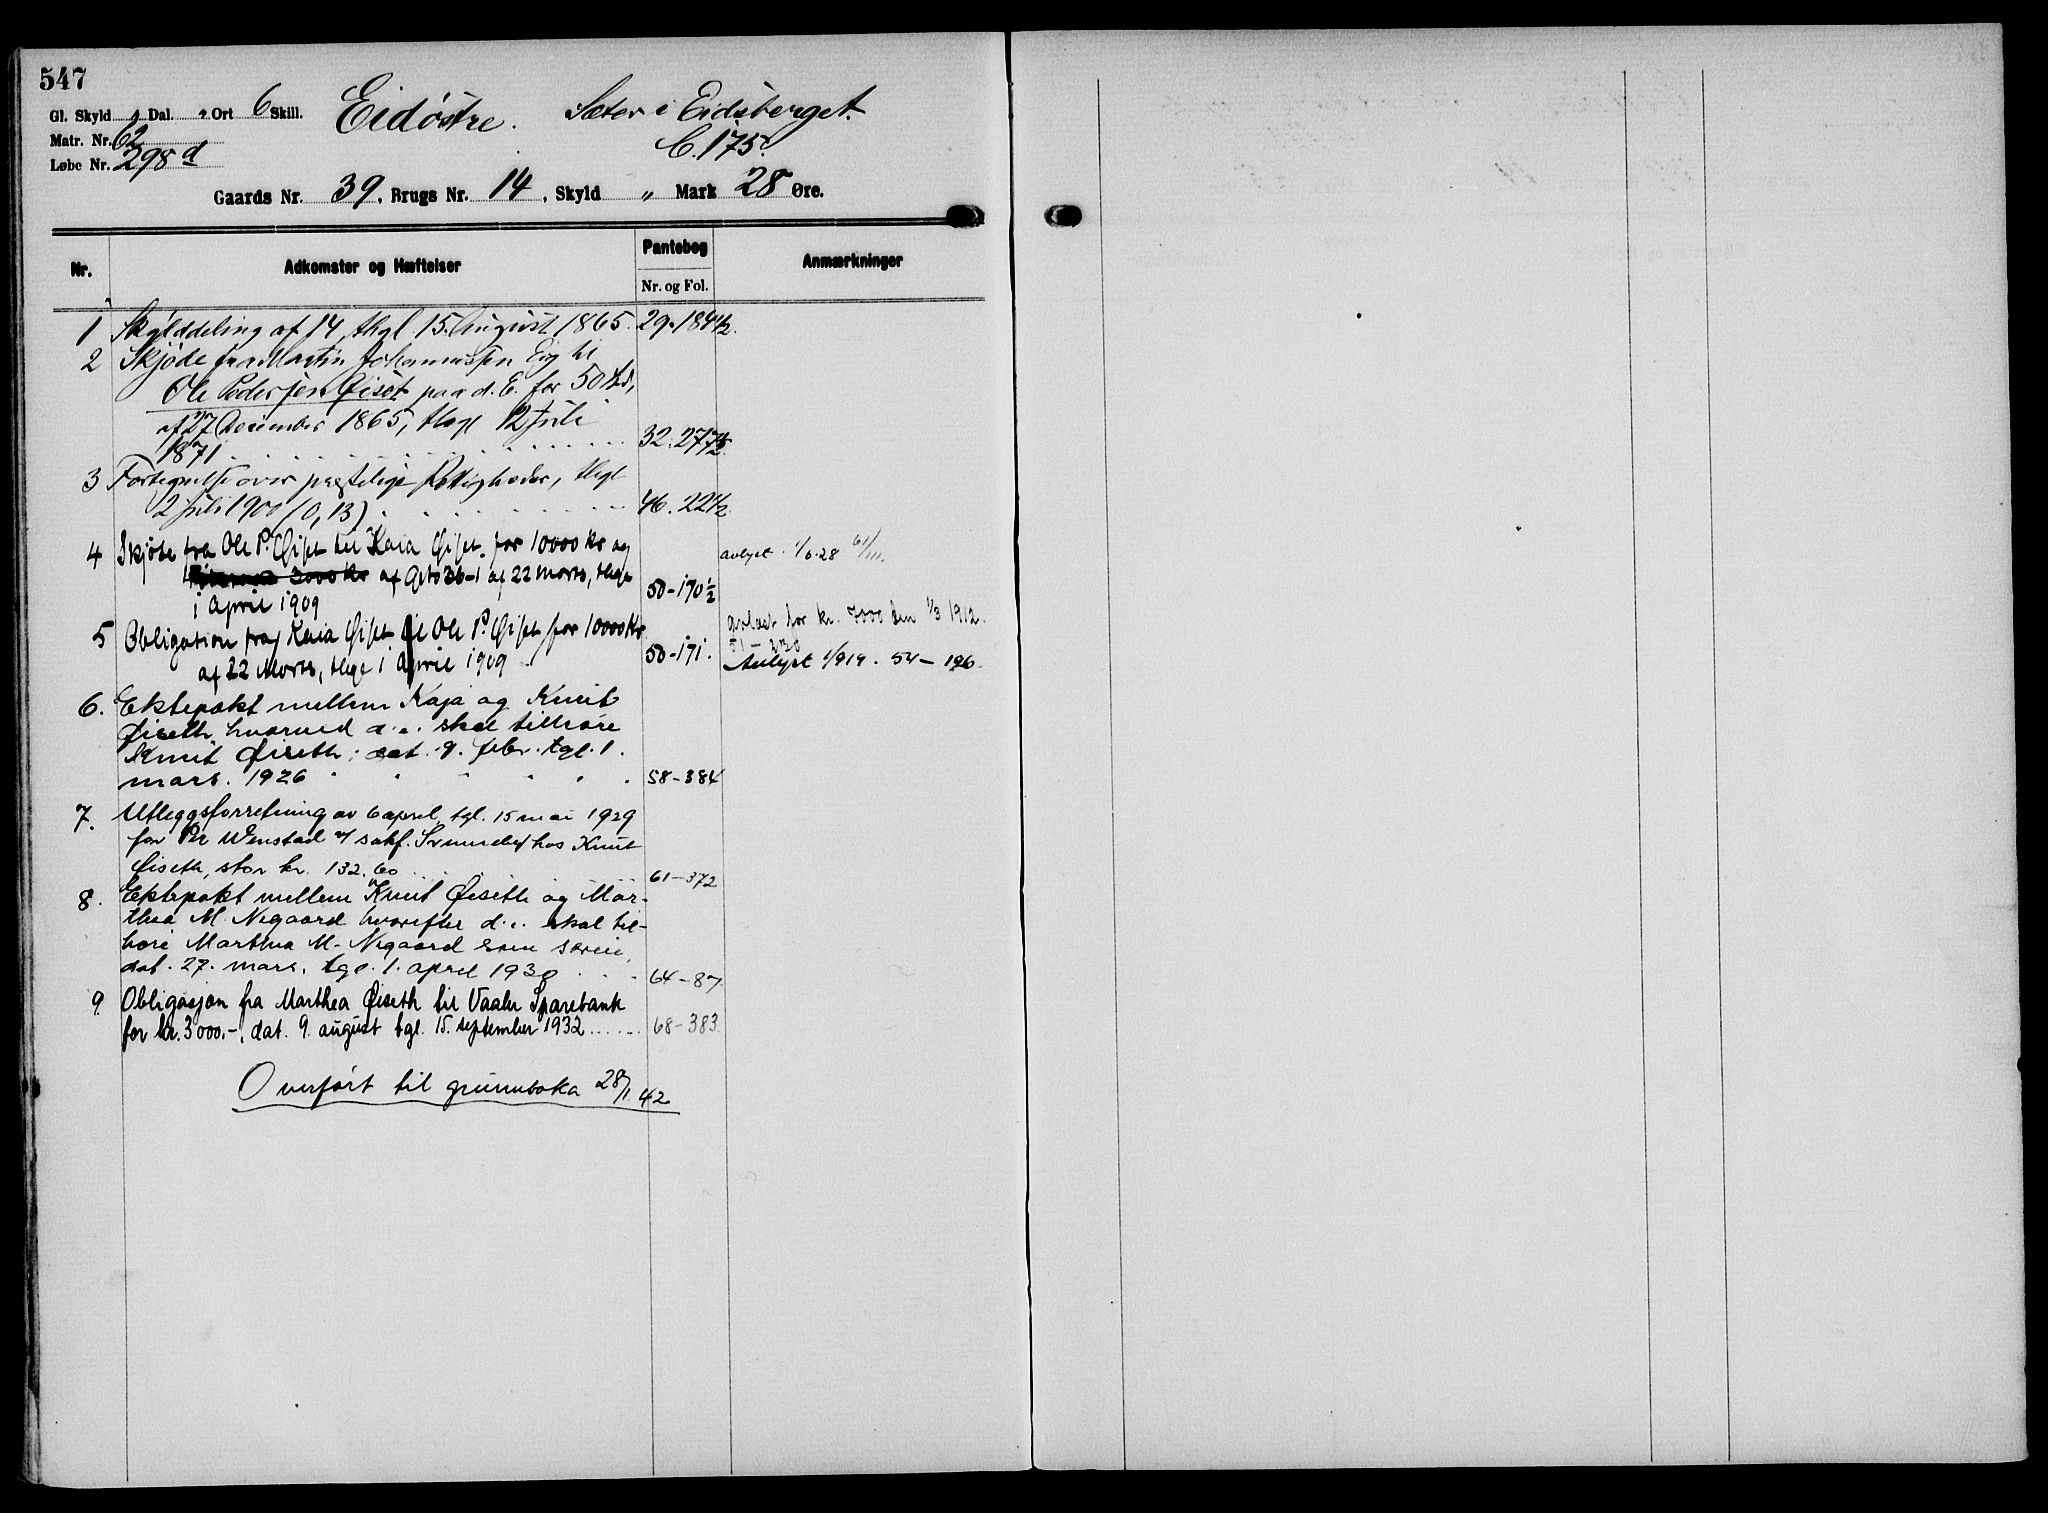 547
Gl. Skyld " Dal. " Ort 6 Skill. Eidøstre. Sæter i Eidsberget.
Matr. Nr. 62 C. 175.
Løbe Nr. 298 d
Gaards Nr. 39, Brugs Nr. 14, Skyld " Mark 28 Øre.
Nr. Adkomster og Hæftelser Pantebog Anmærkninger
Nr. og Fol.
1 Skylddeling af 14, thgl 15. August 1865. 29.184½.
2 Skjøde fra Martin Johannessen Eig til
Ole Pedersen Øiset paa d. E. for 50
af 27 December 1865, thgl 12 Juli
1871 32.277½.
3 Fortegnelse over Rettigheder, thgl
2 Juli 1900 (0,13) 46.22½
4 Skjøte fra Ole P. Øiset til Kaia Øiset for 10000 kr og
3000 kr af 22 Marts, thge
1 April 1909 50-170½
avlyst 1/6.28 61/111.
5 Obligation fra Kaia Øiset til Ole P. Øiset for 10000 Kr
af 22 Marts, thge 1 April 1909 50-171.
avlæst for kr. 7000 den 1/3 1912.
51-230
Avlyst 1/919. 54-196.
6. Ektepakt mellem Kaja og Knut
Øiseth, hvorved d.e. skal tilhøre
Knut Øiseth; dat. 9. febr. tgl. 1.
mars. 1926 58-384
7. Utleggsforretning av 6 april, tgl. 15 mai 1929
for Per Wenstad v/ sakf. hos Knut
Øiseth, stor kr. 132.60 61-372
8. Ektepakt mellem Knut Øiseth og Mar-
thea M. Negaard hvorefter d.e. skal til-
høre Marthea M. Negaard som særeie,
dat. 27. mars, tgl. 1. april 1930 64-87.
9. Obligasjon fra Marthea Øiseth til Vaaler Sparebank
for kr. 3000.-, dat. 9. august tgl. 15. september 1932 68-383.
Overført til grunnboka 28/1 42